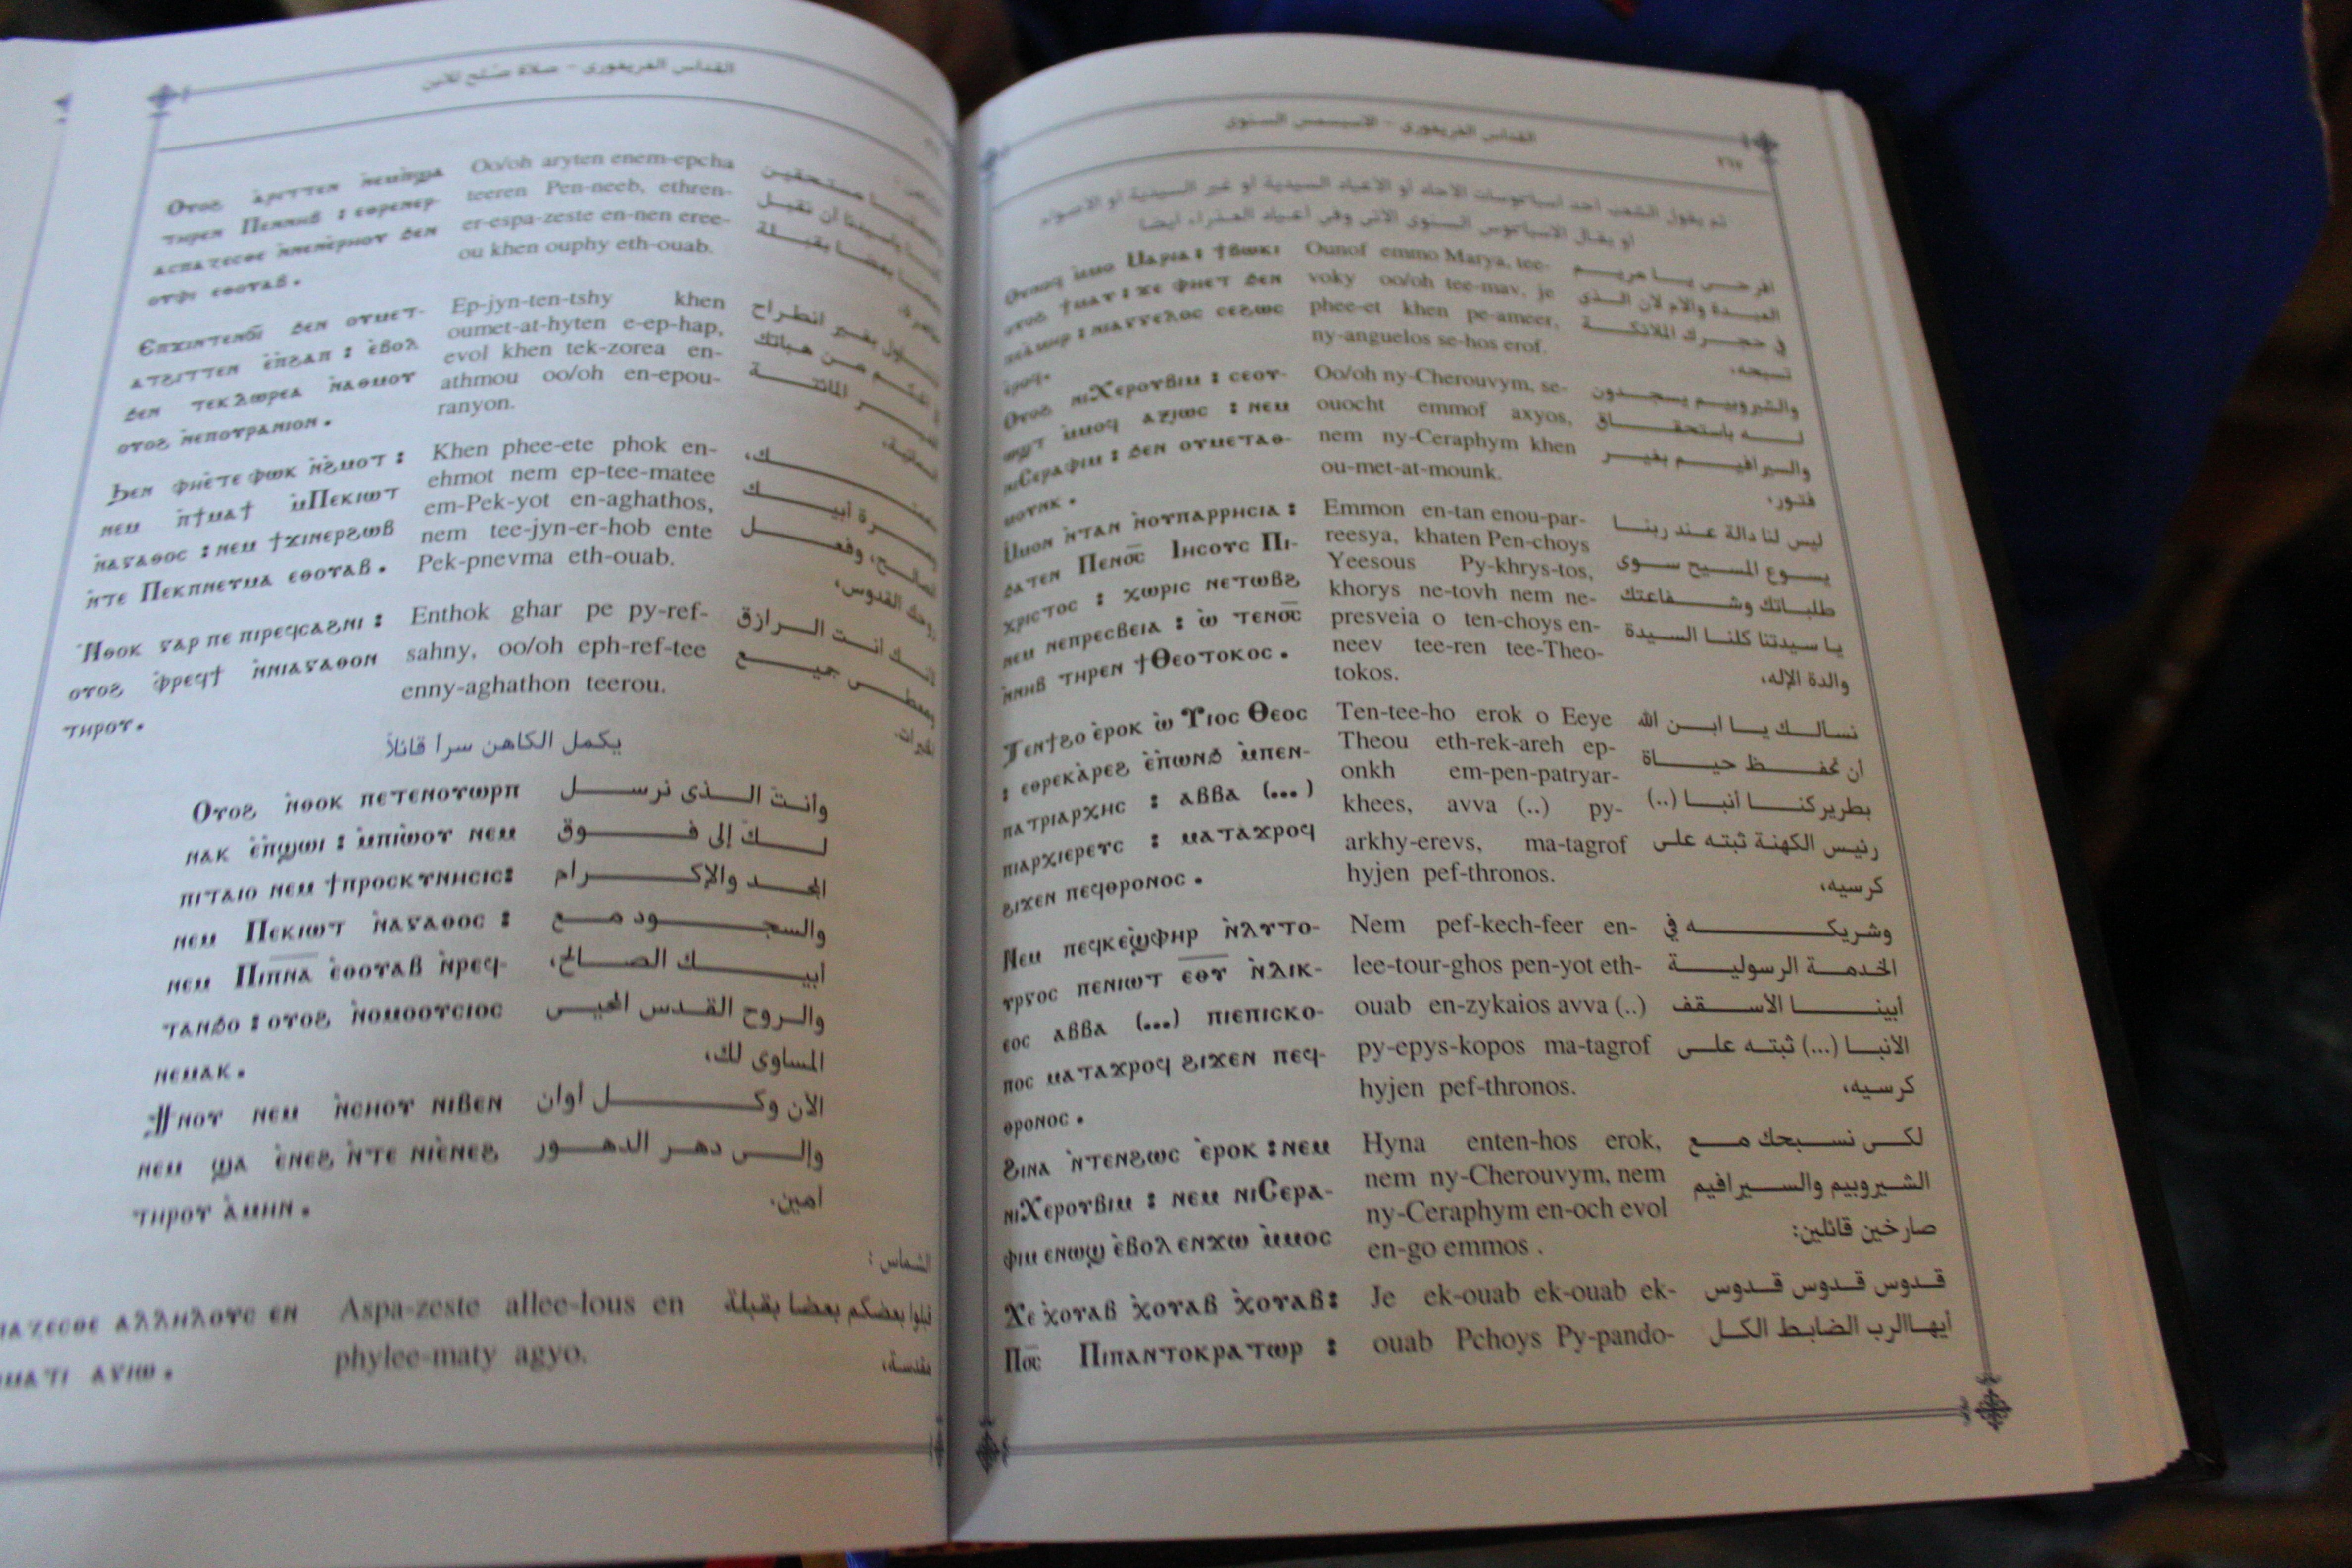 القداس الغريغوري - صلاة صلح للابن
Ⲟⲩⲟϩ ⲁ̀ⲣⲓⲧⲧⲉⲛ ⲛ̀ⲉⲙⲡ̀ϣⲁ
ⲧⲏⲣⲉⲛ Ⲡⲉⲛⲛⲏⲃ : ⲉⲑⲣⲉⲛⲉⲣ-
ⲁⲥⲡⲁⲍⲉⲥⲑⲉ ⲛ̀ⲛⲉⲛⲉ̀ⲣⲏⲟⲩ ϧⲉⲛ
ⲟⲩⲫⲓ ⲉⲑⲟⲩⲁⲃ.
Oo/oh aryten enem-epcha
teeren Pen-neeb, ethren-
er-espa-zeste en-nen eree-
ou khen ouphy eth-ouab.
Ⲉⲡϫⲓⲛⲧⲉⲛϭⲓ ϧⲉⲛ ⲟⲩⲙⲉⲧ-
ⲁⲧϩⲓⲧⲧⲉⲛ ⲉ̀ⲡ̀ϩⲁⲡ : ⲉ̀ⲃⲟⲗ
ϧⲉⲛ ⲧⲉⲕⲇⲱⲣⲉⲁ ⲛ̀ⲁⲑⲙⲟⲩ
ⲟⲩⲟϩ ⲛ̀ⲉⲡⲟⲩⲣⲁⲛⲓⲟⲛ.
Ep-jyn-ten-tshy khen
oumet-at-hyten e-ep-hap,
evol khen tek-zorea en-
athmou oo/oh en-epou-
ranyon.
Ϧⲉⲛ ⲫⲏⲉ̀ⲧⲉ ⲫⲱⲕ ⲛ̀ϩ̀ⲙⲟⲧ :
ⲛⲉⲙ ⲡ̀ϯⲙⲁϯ ⲙ̀Ⲡⲉⲕⲓⲱⲧ
ⲛ̀ⲁⲅⲁⲑⲟⲥ : ⲛⲉⲙ ϯϫⲓⲛⲉⲣϩⲱⲃ
ⲛ̀ⲧⲉ Ⲡⲉⲕⲡⲛⲉⲩⲙⲁ ⲉⲑⲟⲩⲁⲃ.
Khen phee-ete phok en-
ehmot nem ep-tee-matee
em-Pek-yot en-aghathos,
nem tee-jyn-er-hob ente
Pek-pnevma eth-ouab.
Ⲛ̀ⲑⲟⲕ ⲅⲁⲣ ⲡⲉ ⲡⲓⲣⲉϥⲥⲁϩⲛⲓ :
ⲟⲩⲟϩ ⲫ̀ⲣⲉϥϯ ⲛ̀ⲛⲓⲁⲅⲁⲑⲟⲛ
ⲧⲏⲣⲟⲩ.
Enthok ghar pe py-ref-
sahny, oo/oh eph-ref-tee
enny-aghathon teerou.
يكمل الكاهن سراً قائلاً
Ⲟⲩⲟϩ ⲛ̀ⲑⲟⲕ ⲡⲉⲧⲉⲛⲟⲩⲱⲣⲡ
ⲛⲁⲕ ⲉ̀ⲡ̀ϣⲱⲓ : ⲙ̀ⲡⲓⲱ̀ⲟⲩ ⲛⲉⲙ
ⲡⲓⲧⲁⲓⲟ ⲛⲉⲙ ϯⲡⲣⲟⲥⲕⲩⲛⲏⲥⲓⲥ:
ⲛⲉⲙ Ⲡⲉⲕⲓⲱⲧ ⲛ̀ⲁⲅⲁⲑⲟⲥ :
ⲛⲉⲙ Ⲡⲓⲡ̅ⲛ̅ⲁ̅ ⲉ̀ⲑⲟⲩⲁⲃ ⲛ̀ⲣⲉϥ-
ⲧⲁⲛϧⲟ : ⲟⲩⲟϩ ⲛ̀ⲟⲙⲟⲟⲩⲥⲓⲟⲥ
ⲛⲉⲙⲁⲕ.
وأنت الـذى نرسـل
لـك إلى فـوق
المجـد والإكـرام
والسجـود مـع
أبيـك الصـالح،
والـروح القـدس المحيـى
المساوى لك،
Ϯⲛⲟⲩ ⲛⲉⲙ ⲛ̀ⲥⲏⲟⲩ ⲛⲓⲃⲉⲛ
ⲛⲉⲙ ϣⲁ ⲉ̀ⲛⲉϩ ⲛ̀ⲧⲉ ⲛⲓⲉ̀ⲛⲉϩ
ⲧⲏⲣⲟⲩ ⲁ̀ⲙⲏⲛ.
الآن وكـل أوان
وإلـى دهـر الدهـور
آمين.
الشماس :
ⲁⲗⲗⲏⲗⲟⲩⲥ ⲉⲛ
ⲁⲅⲓⲱ.
Aspa-zeste allee-lous en
phylee-maty agyo.
قبلوا بعضكم بعضا بقبلة
مقدسة،
القداس الغريغورى - الأسبسمس السنوى
ثم يقول الشعب أحد أسباتوسات الآحاد أو الأعياد السيدية أو غير السيدية أو الأصوام
أو يقال الأسباتوس السنوى الآتى وفى أعياد العذراء أيضا
Ⲟⲩⲛⲟϥ ⲙ̀ⲙⲟ Ⲙⲁⲣⲓⲁ : ϯⲃⲱⲕⲓ
ⲟⲩⲟϩ ϯⲙⲁⲩ : ϫⲉ ⲫⲏⲉⲧ ϧⲉⲛ
ⲡⲉⲁ̀ⲙⲏⲣ : ⲛⲓⲁⲅⲅⲉⲗⲟⲥ ⲥⲉϩⲱⲥ
ⲉ̀ⲣⲟϥ.
Ounof emmo Marya, tee-
voky oo/oh tee-mav, je
phee-et khen pe-ameer,
ny-anguelos se-hos erof.
افرحـى يـا مريـم
العبـدة والأم لأن الـذى
فى حجـرك الملائكـة
تسبحه.
Ⲟⲩⲟϩ ⲛⲓⲬⲉⲣⲟⲩⲃⲓⲙ : ⲥⲉⲟⲩ-
ⲱϣⲧ ⲙ̀ⲙⲟϥ ⲁⲝⲓⲱⲥ : ⲛⲉⲙ
ⲛⲓⲤⲉⲣⲁⲫⲓⲙ : ϧⲉⲛ ⲟⲩⲙⲉⲧⲁⲑ-
ⲙⲟⲩⲛⲕ.
Oo/oh ny-Cherouvym, se-
ouocht emmof axyos,
nem ny-Ceraphym khen
ou-met-at-mounk.
والشيروبيـم يسجـدون
لـه باستحقـاق
والسيرافيـم بغيـر
فتور.
Ⲙ̀ⲙⲟⲛ ⲛ̀ⲧⲁⲛ ⲛ̀ⲟⲩⲡⲁⲣⲣⲏⲥⲓⲁ :
ϧⲁⲧⲉⲛ Ⲡⲉⲛⲟ̅ⲥ̅ Ⲓⲏⲥⲟⲩⲥ Ⲡⲓ-
ⲭⲣⲓⲥⲧⲟⲥ : ⲭⲱⲣⲓⲥ ⲛⲉⲧⲱⲃϩ
ⲛⲉⲙ ⲛⲉⲡⲣⲉⲥⲃⲉⲓⲁ : ⲱ̀ ⲧⲉⲛⲟ̅ⲥ̅
ⲛ̀ⲛⲏⲃ ⲧⲏⲣⲉⲛ ϯⲐⲉⲟⲧⲟⲕⲟⲥ.
Emmon en-tan enou-par-
reesya, khaten Pen-choys
Yeesous Py-khrys-tos,
khorys ne-tovh nem ne-
presveia o ten-choys en-
neev tee-ren tee-Theo-
tokos.
ليس لنا دالة عنـد ربنـا
يسـوع المسيح سـوى
طلبـاتك وشـفاعتك
يا سيدتنا كلنـا السـيدة
والدة الإله،
Ⲧⲉⲛϯϩⲟ ⲉ̀ⲣⲟⲕ ⲱ̀ Ⲩⲓⲟⲥ Ⲑⲉⲟⲥ
: ⲉⲑⲣⲉⲕⲁ̀ⲣⲉϩ ⲉ̀ⲡ̀ⲱⲛϧ ⲙ̀ⲡⲉⲛ-
ⲡⲁⲧⲣⲓⲁⲣⲭⲏⲥ : ⲁⲃⲃⲁ (...)
ⲡⲓⲁⲣⲭⲓⲉⲣⲉⲩⲥ : ⲙⲁⲧⲁϫⲣⲟϥ
ϩⲓϫⲉⲛ ⲡⲉϥⲑⲣⲟⲛⲟⲥ.
Ten-tee-ho erok o Eeye
Theou eth-rek-areh ep-
onkh em-pen-patryar-
khees, avva (..) py-
arkhy-erevs, ma-tagrof
hyjen pef-thronos.
نسألـك يـا ابـن الله
أن تحفـظ حيـاة
بطريركنـا أنبـا (..)
رئيس الكهنة ثبتـه على
كرسيه،
Ⲛⲉⲙ ⲡⲉϥⲕⲉϣ̀ⲫⲏⲣ ⲛ̀ⲗⲩⲧⲟ-
ⲩⲣⲅⲟⲥ ⲡⲉⲛⲓⲱⲧ ⲉ̅ⲑ̅ⲩ̅ ⲛ̀ⲇⲓⲕ-
ⲉⲟⲥ ⲁⲃⲃⲁ (...) ⲡⲓⲉⲡⲓⲥⲕⲟ-
ⲡⲟⲥ ⲙⲁⲧⲁϫⲣⲟϥ ϩⲓϫⲉⲛ ⲡⲉϥ-
ⲑⲣⲟⲛⲟⲥ.
Nem pef-kech-feer en-
lee-tour-ghos pen-yot eth-
ouab en-zykaios avva (..)
py-epys-kopos ma-tagrof
hyjen pef-thronos.
وشريكـه فى
الخدمـة الرسوليـة
أبينـا الأسـقف
الأنبـا (...) ثبتـه علـى
كرسيه،
Ϩⲓⲛⲁ ⲛ̀ⲧⲉⲛϩⲱⲥ ⲉ̀ⲣⲟⲕ : ⲛⲉⲙ
ⲛⲓⲬⲉⲣⲟⲩⲃⲓⲙ : ⲛⲉⲙ ⲛⲓⲤⲉⲣⲁ-
ⲫⲓⲙ ⲉⲛⲱϣ ⲉ̀ⲃⲟⲗ ⲉⲛϫⲱ ⲙ̀ⲙⲟⲥ
Hyna enten-hos erok,
nem ny-Cherouvym, nem
ny-Ceraphym en-och evol
en-go emmos .
لكـى نسـبحك مـع
الشـيروبيم والسـيرافيم
صارخين قائلين:
Ϫⲉ ⲭ̀ⲟⲩⲁⲃ ⲭ̀ⲟⲩⲁⲃ ⲭ̀ⲟⲩⲁⲃ:
Ⲡⲟ̅ⲥ̅ Ⲡⲓⲡⲁⲛⲧⲟⲕⲣⲁⲧⲱⲣ :
Je ek-ouab ek-ouab ek-
ouab Pchoys Py-pando-
قـدوس قـدوس قـدوس
أيهـاالرب الضابـط الكـل